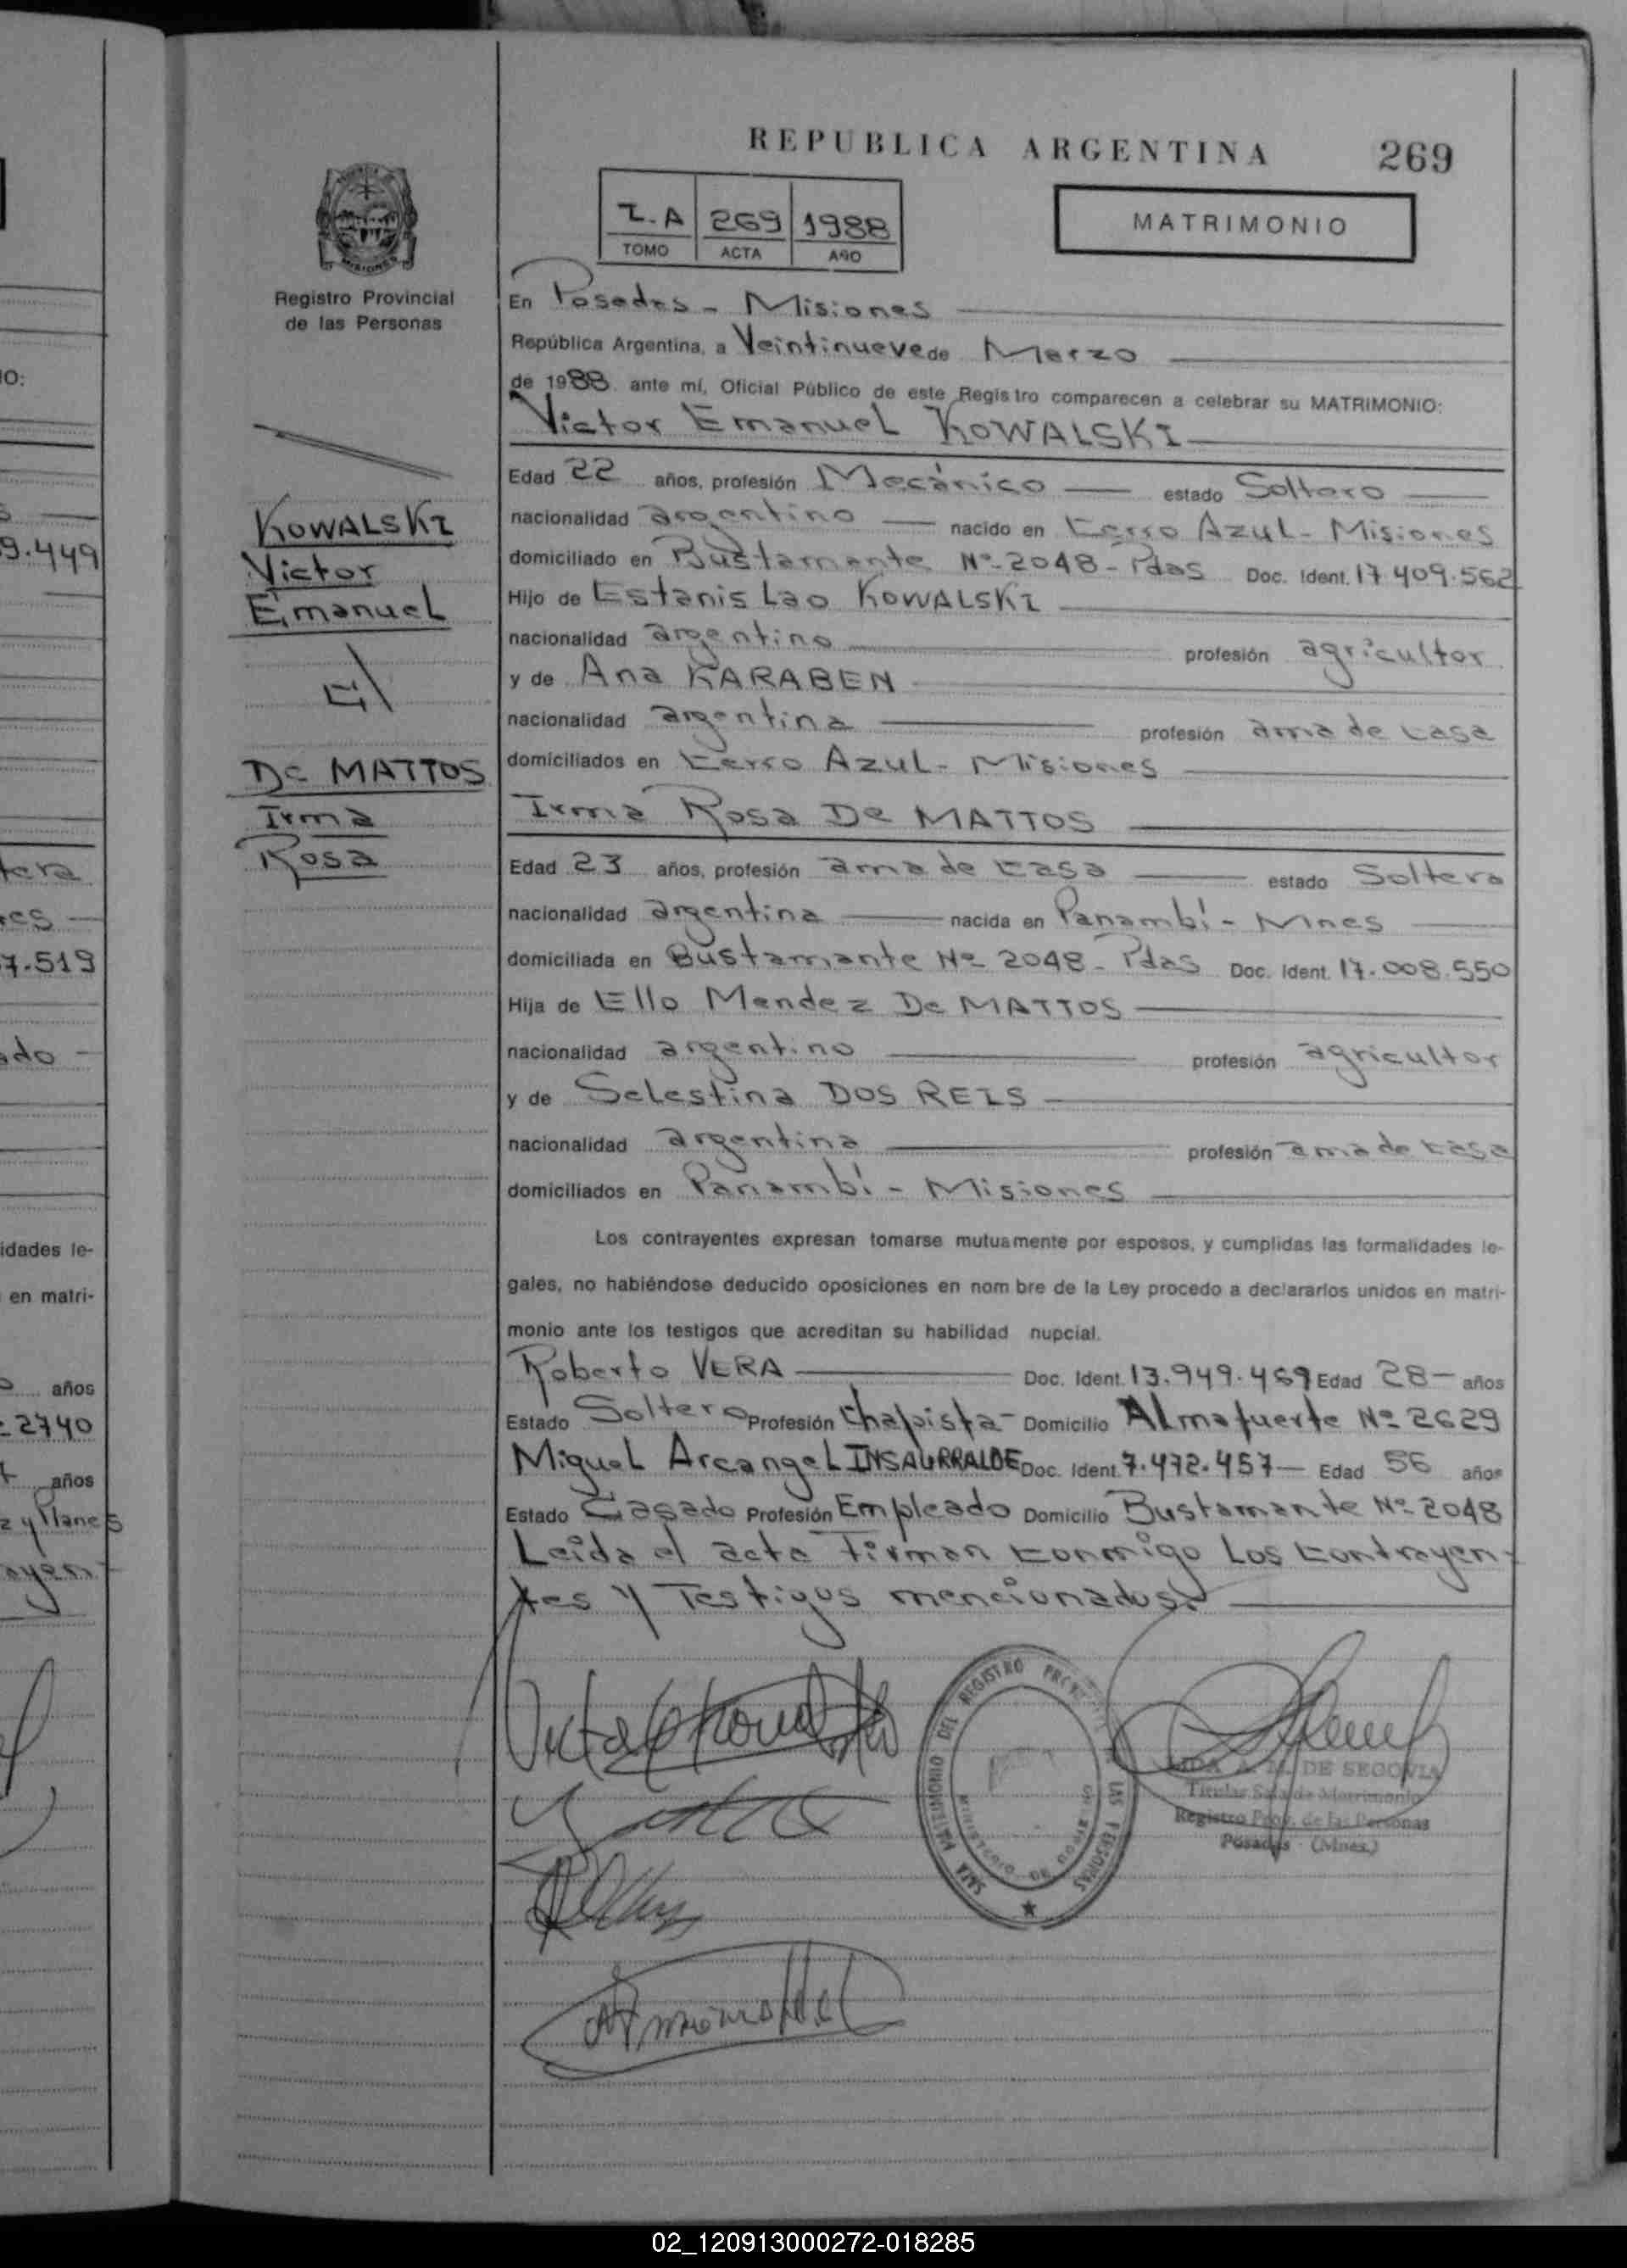 REPUBLICA ARGENTINA 269
I-A 269 1988
TOMO ACTA AÑO
MATRIMONIO
MISIONES
Registro Provincial
de las Personas
En Posadas - Misiones
República Argentina, a Veintinueve de Marzo
de 1988 ante mí, Oficial Público de este Registro comparecen a celebrar su MATRIMONIO:
Victor Emanuel KOWALSKI
Edad 22 años, profesión Mecánico estado Soltero
nacionalidad argentino nacido en Cerro Azul - Misiones
domiciliado en Bustamante Nº 2048 - Pdas Doc. Ident. 17.409.562
Hijo de Estanislao KOWALSKI
nacionalidad argentino profesión agricultor
y de Ana KARABEN
nacionalidad argentina profesión ama de casa
domiciliados en Cerro Azul - Misiones
Irma Rosa De MATTOS
Edad 23 años, profesión ama de casa estado Soltera
nacionalidad argentina nacida en Panambí - Mnes
domiciliada en Bustamante Nº 2048 - Pdas Doc. Ident. 17.008.550
Hija de Ello Mendez De MATTOS
nacionalidad argentino profesión agricultor
y de Selestina DOS REIS
nacionalidad argentina profesión ama de casa
domiciliados en Panambí - Misiones
Los contrayentes expresan tomarse mutuamente por esposos, y cumplidas las formalidades le-
gales, no habiéndose deducido oposiciones en nombre de la Ley procedo a declararlos unidos en matri-
monio ante los testigos que acreditan su habilidad nupcial.
Roberto VERA Doc. Ident. 13.949.469 Edad 28 años
Estado Soltero Profesión Chapista Domicilio Almafuerte Nº 2629
Miguel Arcangel INSAURRALDE Doc. Ident. 7.472.457 Edad 56 años
Estado Casado Profesión Empleado Domicilio Bustamante Nº 2048
Leída el acta firman conmigo los contrayen-
tes y Testigos mencionados.
KOWALSKI
Victor
Emanuel
De MATTOS
Irma
Rosa
SALA MATRIMONIO DEL REGISTRO LAS PERSONAS
MINISTERIO DE GOBIERNO
DE SEGOVIA
Titular Sala de Matrimonio
Registro Prov. de las Personas
Posadas (Mnes.)
O:
9.449
tera
7.519
idades le-
en matri-
años
2740
años
02_120913000272-018285